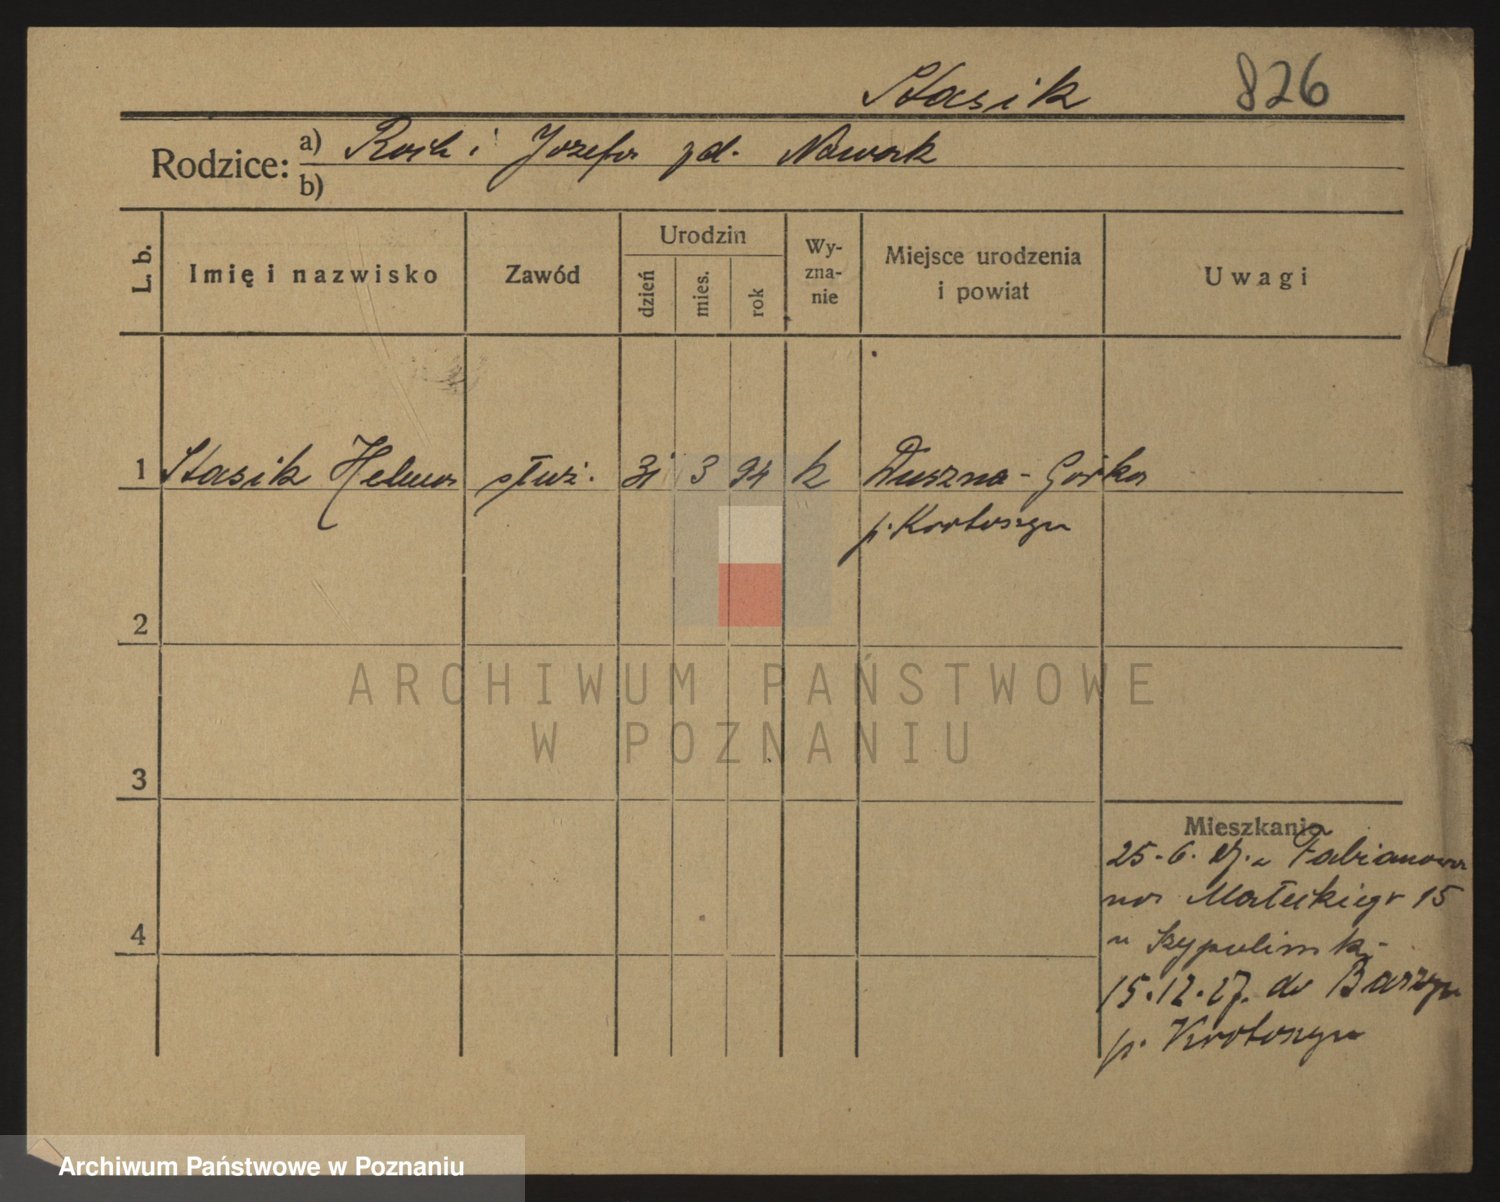 Stasik 826
Rodzice: a) Roch i Józefa zd. Nowak
b)
L. b. Imię i nazwisko Zawód Urodzin dzień mies. rok Wyznanie Miejsce urodzenia i powiat Uwagi
1 Stasik Helena służ. 31 3 94 k Duszna-Górka
p. Krotoszyn
2
ARCHIWUM PAŃSTWOWE
W POZNANIU
3
Mieszkania
25.6. 27. z Fabianowa
na Małeckiego 15
u
4
15.12.27. do
p. Krotoszyn
Archiwum Państwowe w Poznaniu